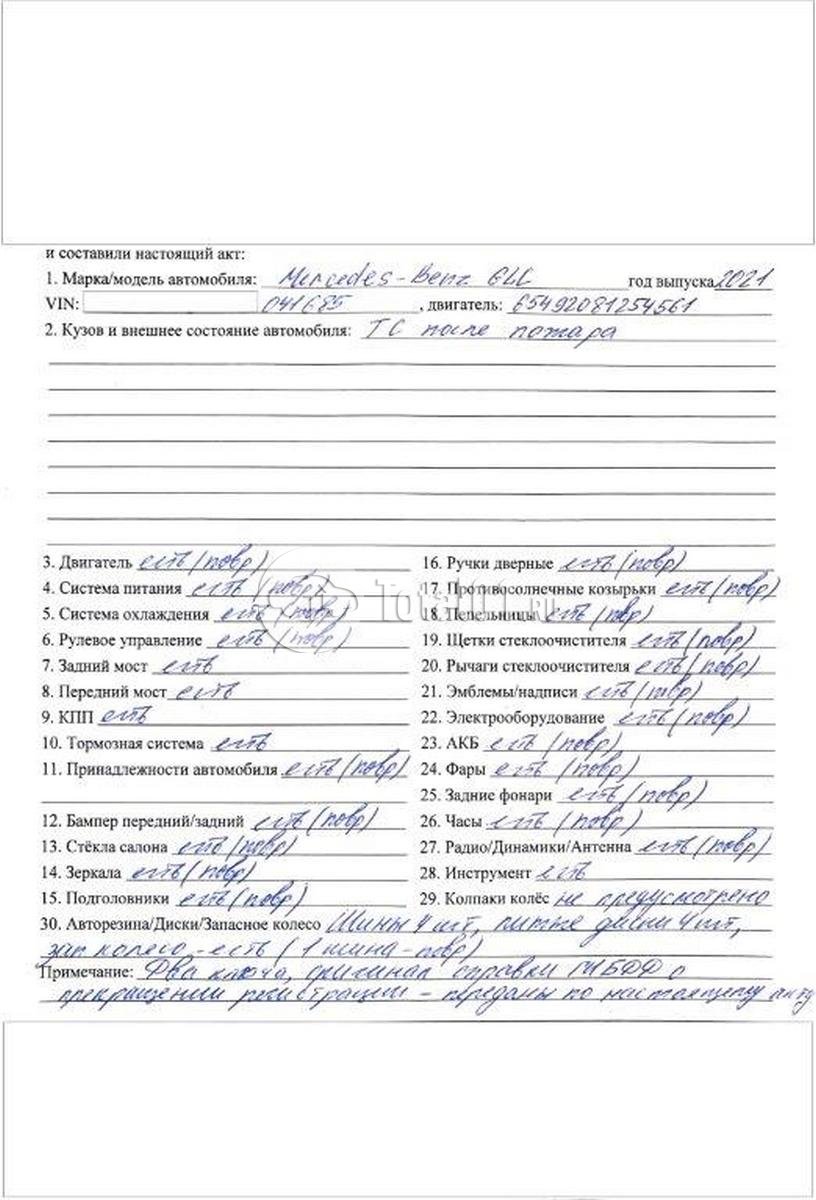 и составили настоящий акт:
1. Марка/модель автомобиля: Mercedes-Benz GLC год выпуска 2021
VIN: 041685, двигатель: 65492081254561
2. Кузов и внешнее состояние автомобиля: ТС после пожара
3. Двигатель есть (повр)
4. Система питания есть (повр)
5. Система охлаждения есть (повр)
6. Рулевое управление есть (повр)
7. Задний мост есть
8. Передний мост есть
9. КПП есть
10. Тормозная система есть
11. Принадлежности автомобиля есть (повр)
12. Бампер передний/задний есть (повр)
13. Стёкла салона есть (повр)
14. Зеркала есть (повр)
15. Подголовники есть (повр)
16. Ручки дверные есть (повр)
17. Противосолнечные козырьки есть (повр)
18. Пепельницы есть (повр)
19. Щетки стеклоочистителя есть (повр)
20. Рычаги стеклоочистителя есть (повр)
21. Эмблемы/надписи есть (повр)
22. Электрооборудование есть (повр)
23. АКБ есть (повр)
24. Фары есть (повр)
25. Задние фонари есть (повр)
26. Часы есть (повр)
27. Радио/Динамики/Антенна есть (повр)
28. Инструмент есть
29. Колпаки колёс не предусмотрено
30. Авторезина/Диски/Запасное колесо Шины 4 шт, литые диски 4 шт,
зап колесо - есть (1 шина - повр)
Примечание: Два ключа, оригинал справки ГИБДД о
прекращении регистрации - переданы по настоящему акту
Total01.ru